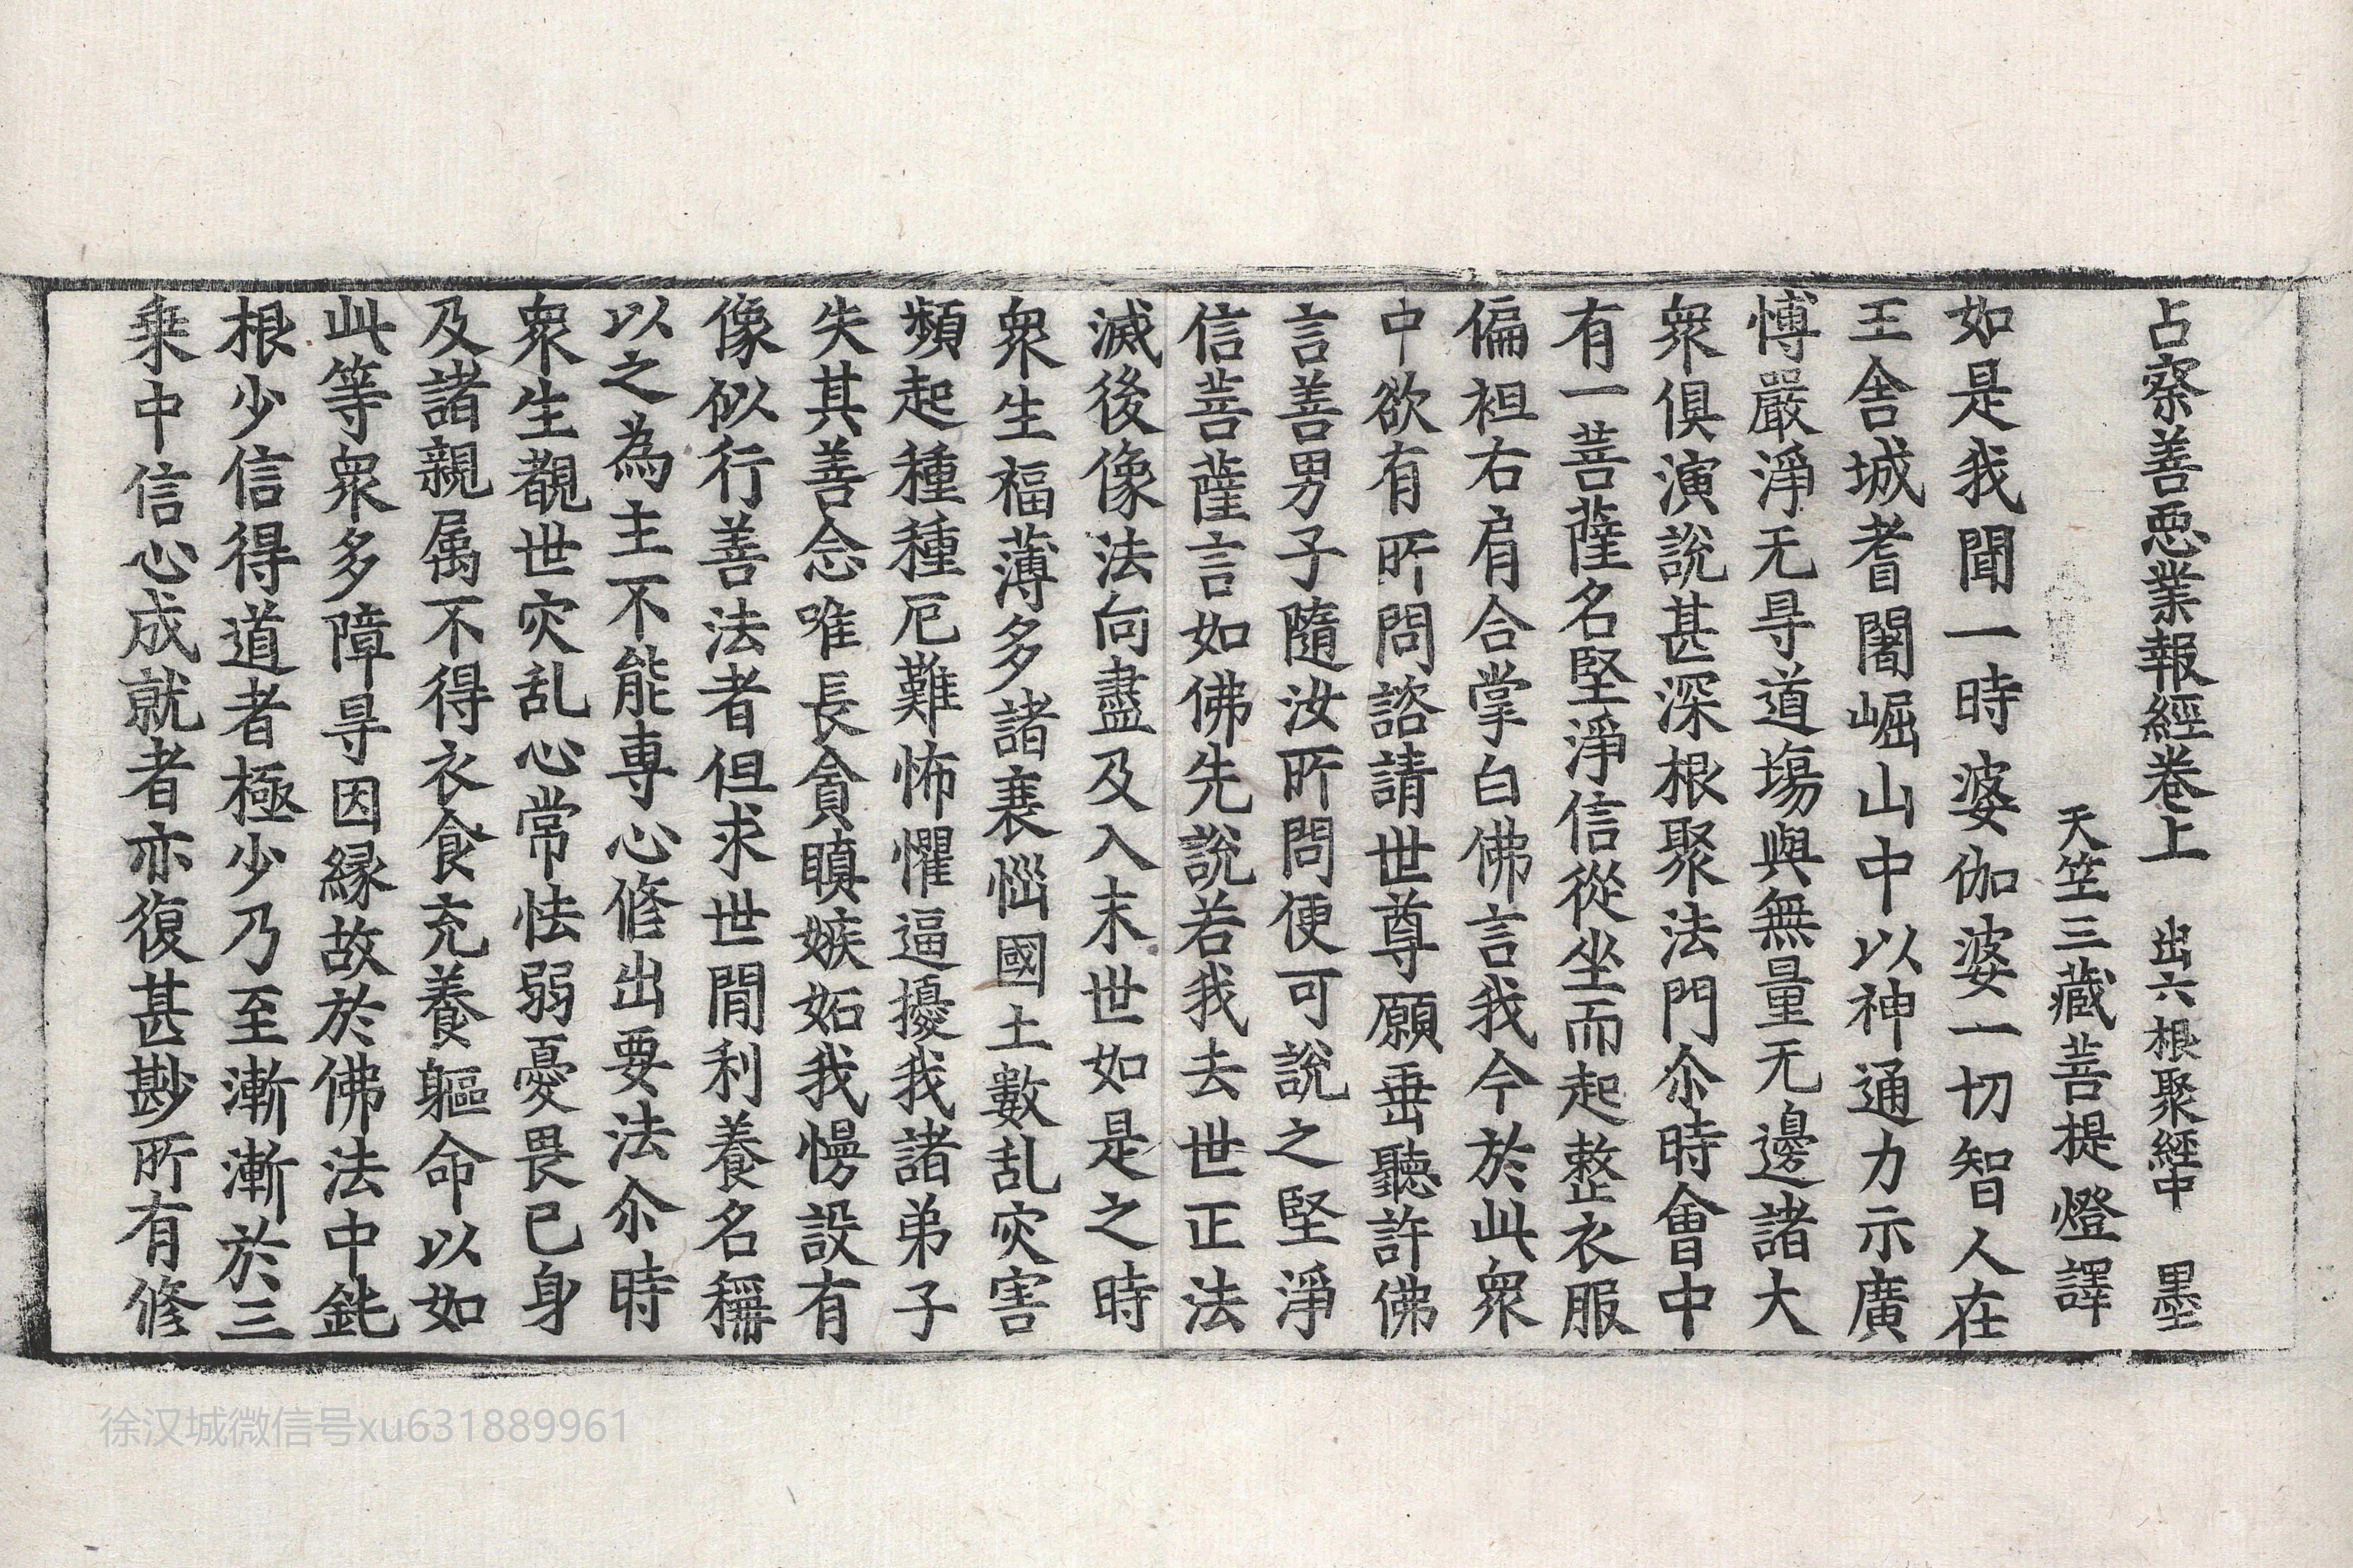 占察善惡業報經卷上　出六根聚經中　墨
天竺三藏菩提燈譯
如是我聞一時婆伽婆一切智人在
王舍城耆闍崛山中以神通力示廣
愽嚴淨无㝵道塲與無量无邊諸大
衆俱演說甚深根聚法門尒時會中
有一菩薩名堅淨信從坐而起整衣服
偏袒右肩合掌白佛言我今於此衆
中欲有所問諮請世尊願垂聽許佛
言善男子隨汝所問便可說之堅淨
信菩薩言如佛先說若我去世正法
滅後像法向盡及入末世如是之時
衆生福薄多諸衰惱國土數乱灾害
頻起種種厄難怖懼逼擾我諸弟子
失其善念唯長貪瞋嫉妬我慢設有
像似行善法者但求世閒利養名稱
以之為主不能專心修出要法尒時
衆生覩世灾乱心常怯弱憂畏己身
及諸親属不得衣食充養軀命以如
此等衆多障㝵因緣故於佛法中鈍
根少信得道者極少乃至漸漸於三
乗中信心成就者亦復甚尠所有修
徐汉城微信号xu631889961